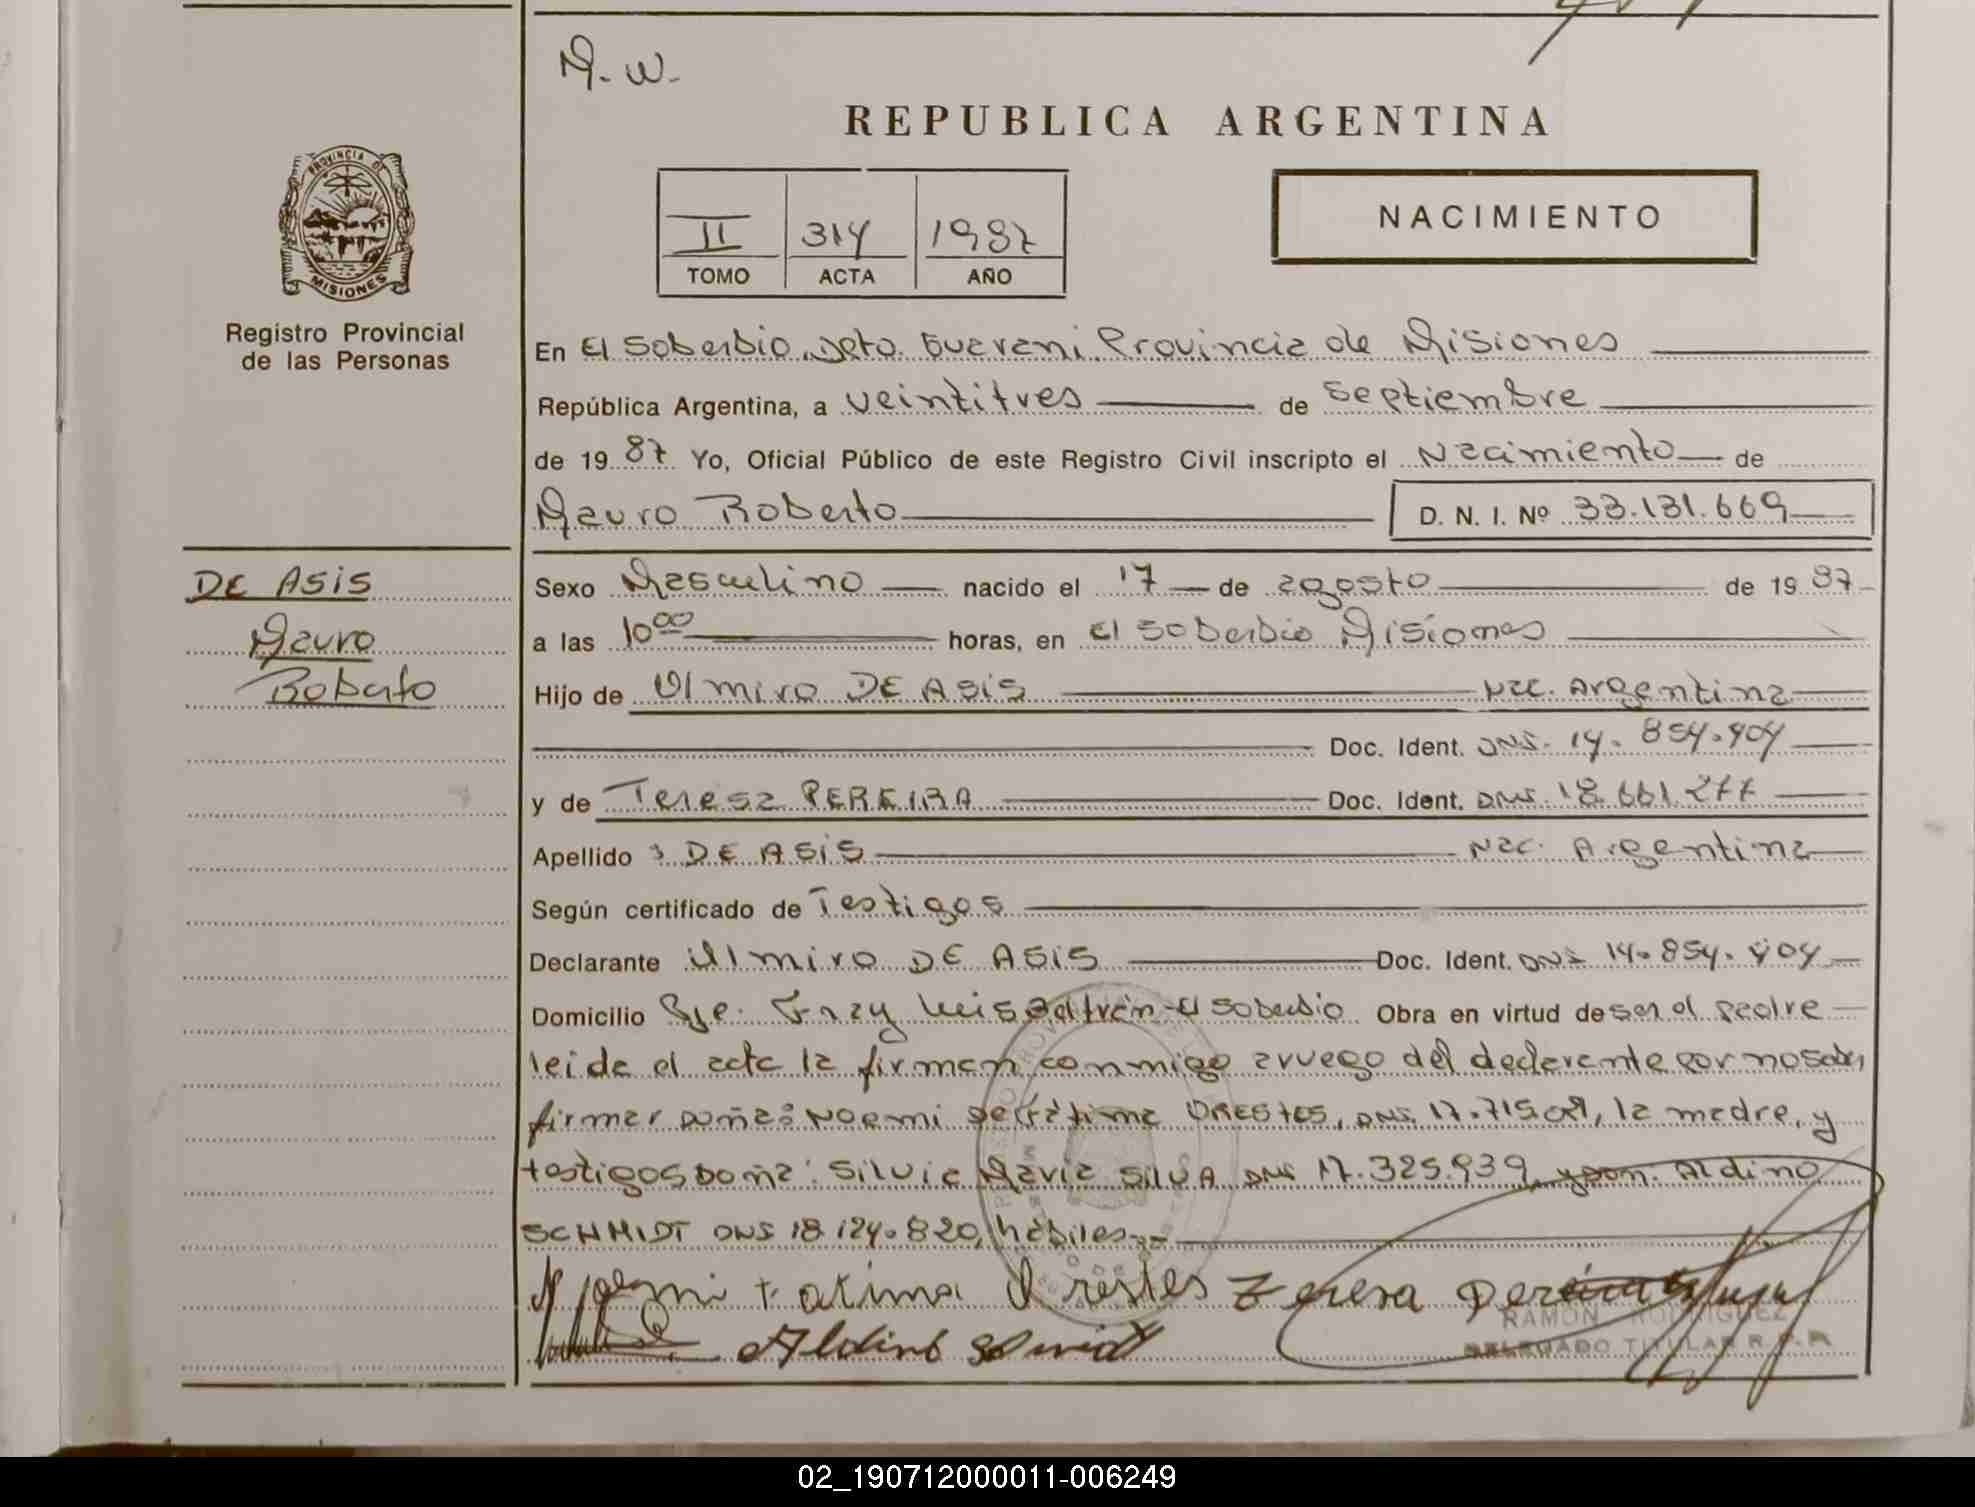 M. W.
REPUBLICA ARGENTINA
PROVINCIA DE
MISIONES
Registro Provincial
de las Personas
II 314 1987
TOMO ACTA AÑO
NACIMIENTO
En El Soberbio, Dpto. Guarani Provincia de Misiones
República Argentina, a veintitres de Septiembre
de 1987 Yo, Oficial Público de este Registro Civil inscripto el Nacimiento de
Mauro Roberto D. N. I. Nº 33.131.669
DE ASIS
Mauro
Roberto
Sexo Masculino nacido el 17 de agosto de 1987
a las 10 00 horas, en El Soberbio Misiones
Hijo de Ulmiro DE ASIS Nac. Argentina
Doc. Ident. DNI. 14.854.404
y de Teresa PEREIRA Doc. Ident. DNI. 18.661.277
Apellido DE ASIS Nac. Argentina
Según certificado de Testigos
Declarante Ulmiro DE ASIS Doc. Ident. DNI 14.854.404
Domicilio Pje. Fray Luis Beltrán-El Soberbio Obra en virtud de ser el padre
leida el acta la firman conmigo a ruego del declarante por no saber
firmar Doña: Noemi de Fátima ORESTES, DNI. la madre, y
testigos Doña: Silvia Maria SILVA DNI 17.325.939, y Don: Aldino
SCHMIDT DNI 18.124.820, hábiles.-
Noemi Fatima Orestes Teresa Pereira
Aldino Schmidt
RAMON RODRIGUEZ
DELEGADO TITULAR R.C.P.
02_190712000011-006249